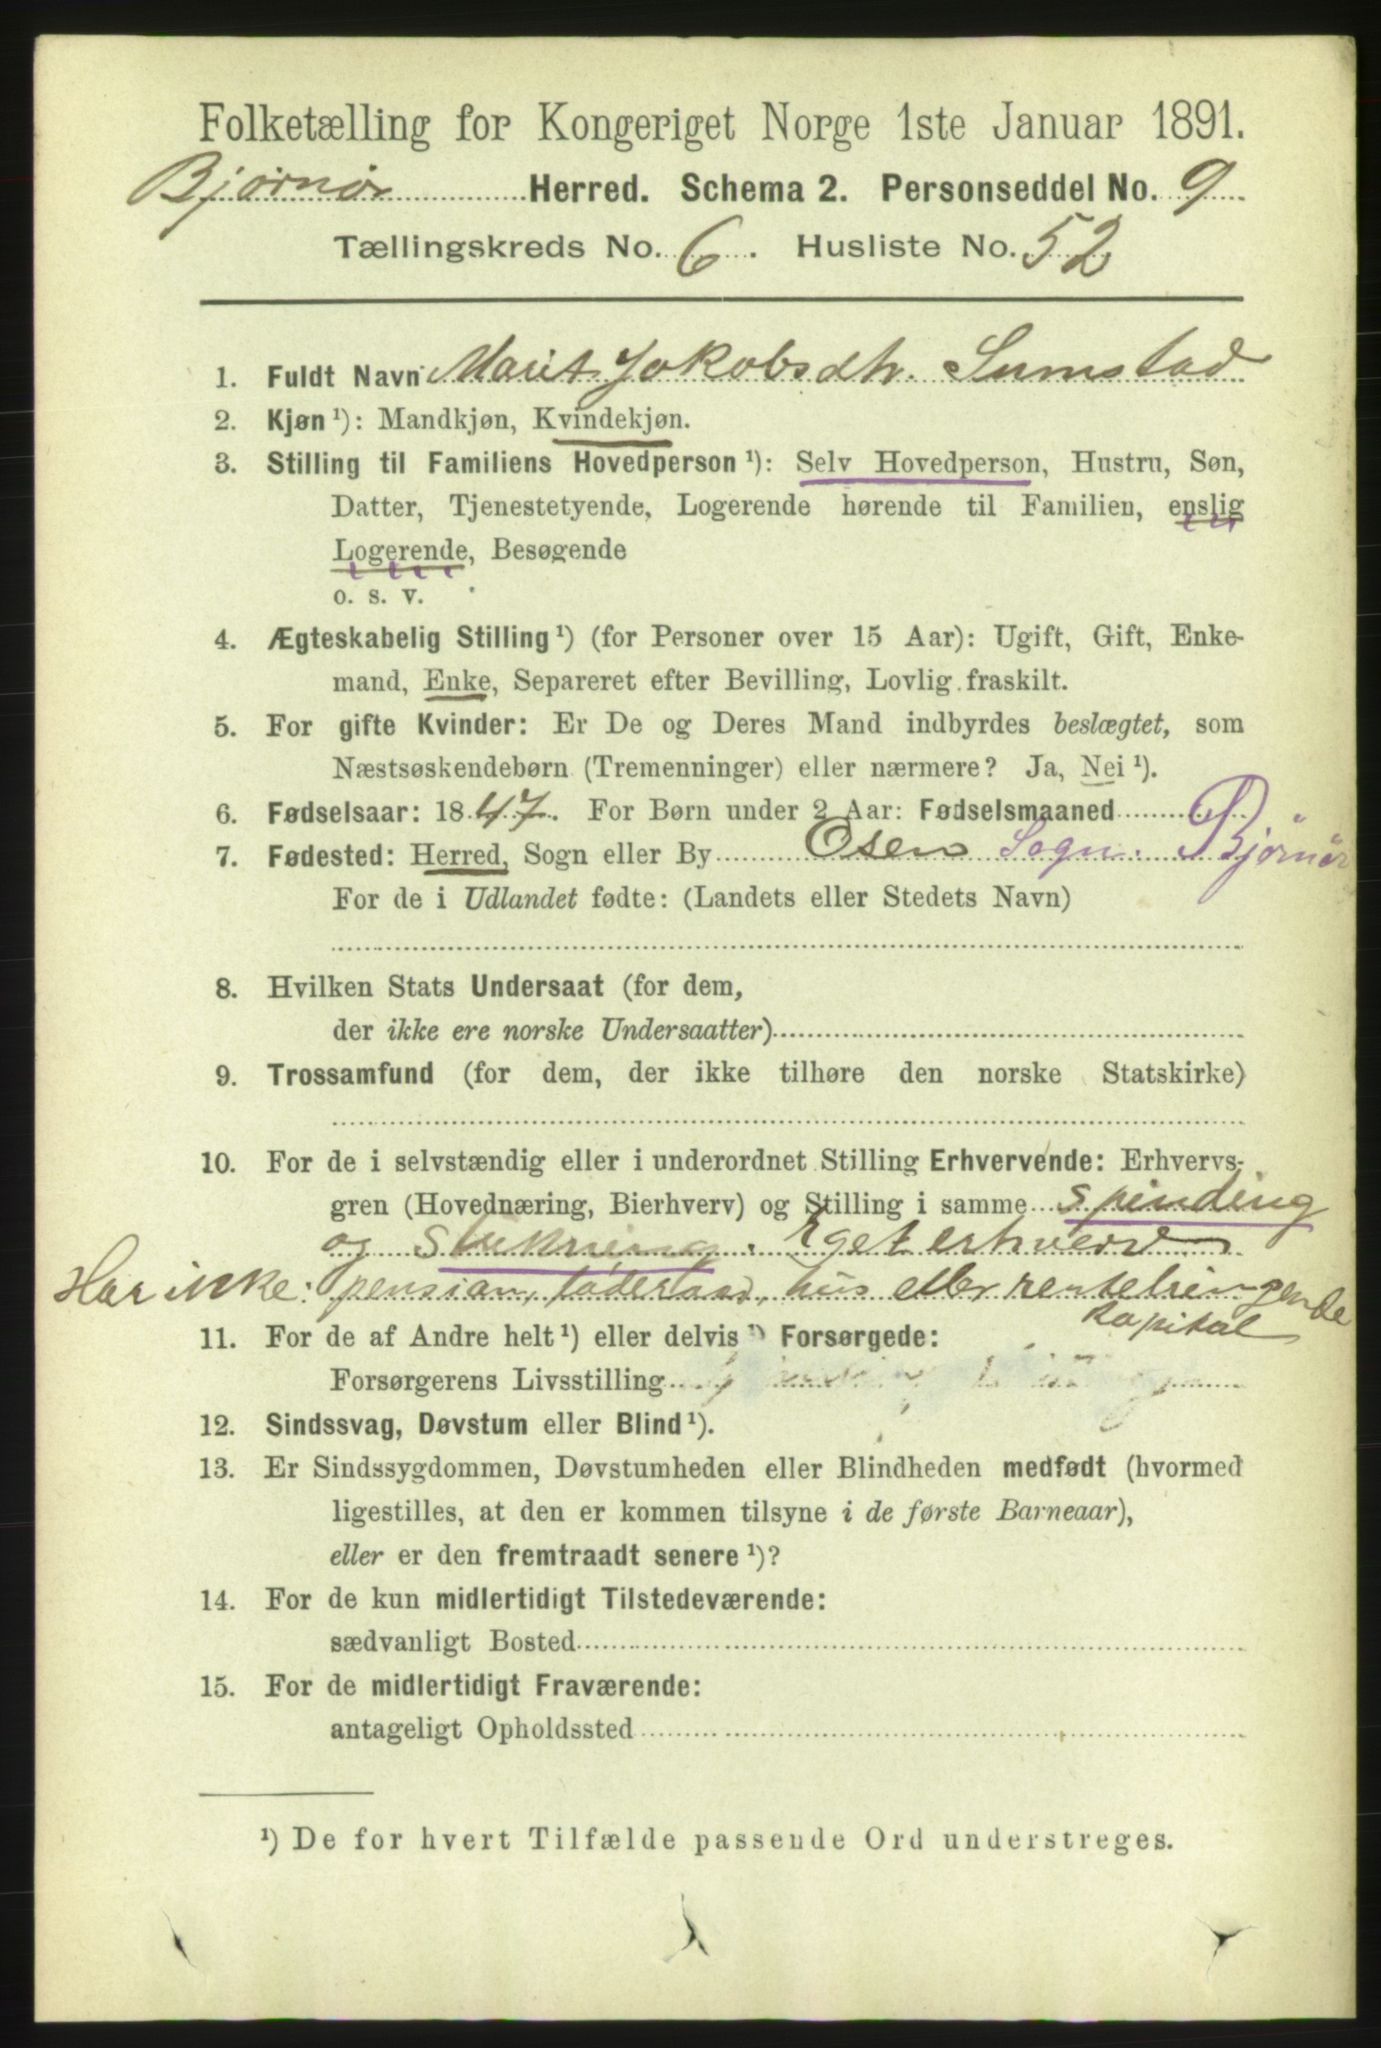 Folketælling for Kongeriget Norge 1ste Januar 1891.
Bjørnør Herred. Schema 2. Personseddel No. 9
Tællingskreds No. 6. Husliste No. 52
1. Fuldt Navn Marit Jakobsdtr. Sumstad
2. Kjøn ¹): Mandkjøn, Kvindekjøn.
3. Stilling til Familiens Hovedperson ¹): Selv Hovedperson, Hustru, Søn,
Datter, Tjenestetyende, Logerende hørende til Familien, enslig
Logerende, Besøgende
o. s. v.
4. Ægteskabelig Stilling ¹) (for Personer over 15 Aar): Ugift, Gift, Enke-
mand, Enke, Separeret efter Bevilling, Lovlig fraskilt.
5. For gifte Kvinder: Er De og Deres Mand indbyrdes beslægtet, som
Næstsøskendebørn (Tremenninger) eller nærmere? Ja, Nei ¹).
6. Fødselsaar: 1847. For Børn under 2 Aar: Fødselsmaaned
7. Fødested: Herred, Sogn eller By Osen Sogn. Bjørnør
For de i Udlandet fødte: (Landets eller Stedets Navn)
8. Hvilken Stats Undersaat (for dem,
der ikke ere norske Undersaatter)
9. Trossamfund (for dem, der ikke tilhøre den norske Statskirke)
10. For de i selvstændig eller i underordnet Stilling Erhvervende: Erhvervs-
gren (Hovednæring, Bierhverv) og Stilling i samme spinding
og strikning. Eget erhverv
Har ikke: pension, føderaad, hus eller rentebringende
kapital
11. For de af Andre helt ¹) eller delvis ¹) Forsørgede:
Forsørgerens Livsstilling
12. Sindssvag, Døvstum eller Blind ¹).
13. Er Sindssygdommen, Døvstumheden eller Blindheden medfødt (hvormed
ligestilles, at den er kommen tilsyne i de første Barneaar),
eller er den fremtraadt senere ¹)?
14. For de kun midlertidigt Tilstedeværende:
sædvanligt Bosted
15. For de midlertidigt Fraværende:
antageligt Opholdssted
¹) De for hvert Tilfælde passende Ord understreges.